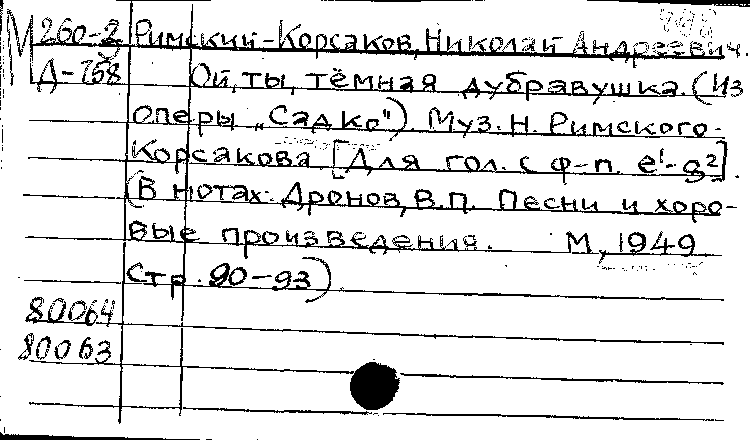 М 260-2 Римский-Корсаков, Николай Андреевич.
Д-758 Ой, ты, тёмная дубравушка. (Из
оперы „Садко"). Муз. Н. Римского-
Корсакова. [Для гол. с ф-п. e¹-g²].
(В нотах: Дронов, В.П. Песни и хоро-
вые произведения. М, 1949
Стр. 90-93)
80064
80063